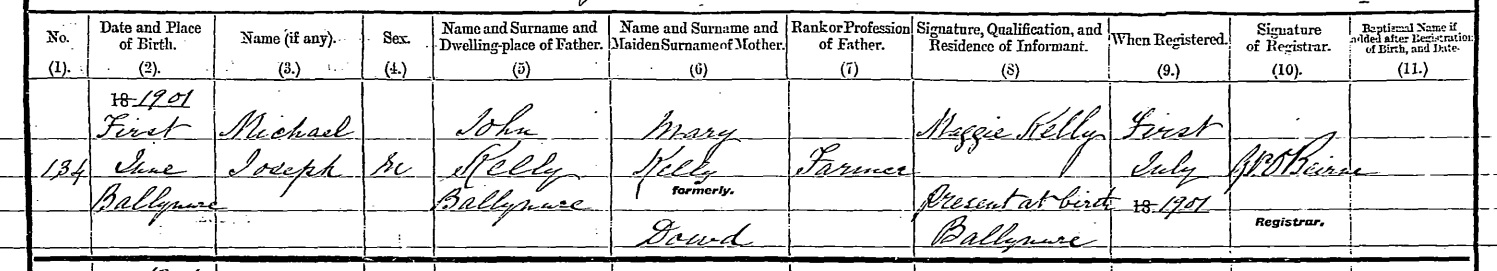 No. (1).
Date and Place of Birth. (2).
Name (if any). (3.)
Sex. (4.)
Name and Surname and Dwelling-place of Father. (5)
Name and Surname and Maiden Surname of Mother. (6)
Rank or Profession of Father. (7)
Signature, Qualification, and Residence of Informant. (8)
When Registered. (9.)
Signature of Registrar. (10.)
Baptismal Name if added after Registration of Birth, and Date. (11.)
134
18 1901
First
June
Ballypure
Michael
Joseph
M
John
Kelly
Ballypure
Mary
Kelly
formerly.
Dowd
Farmer
Maggie Kelly
Present at birth
Ballypure
First
July
18 1901
O'Beirne
Registrar.